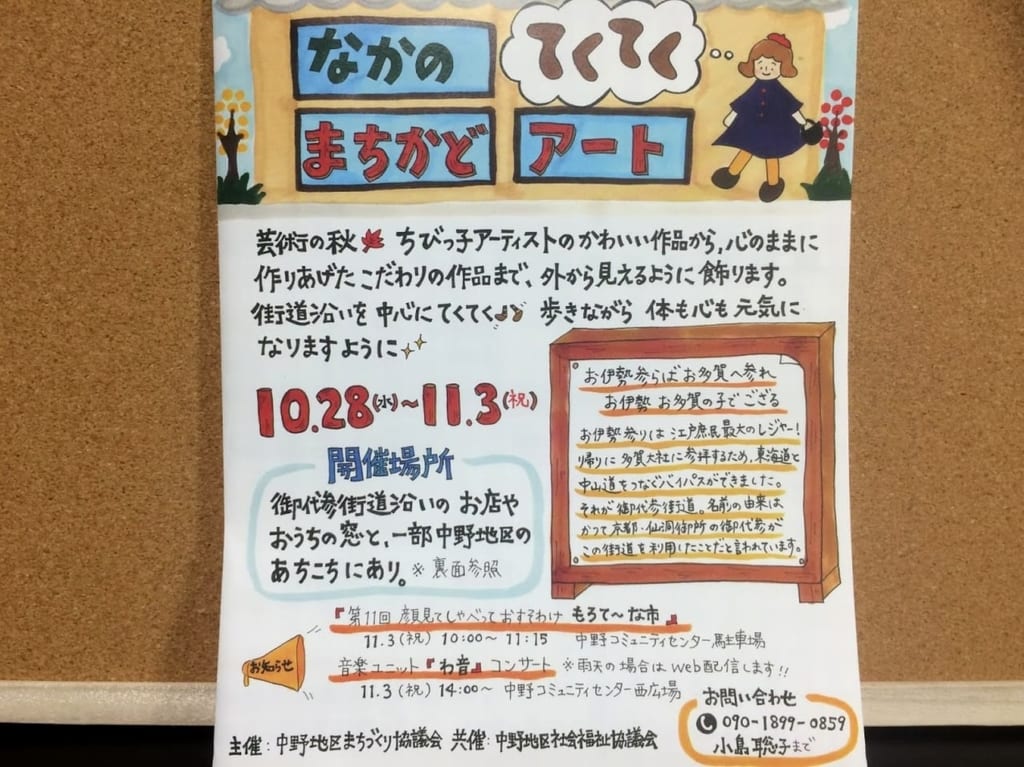 なかの てくてく
まちかど アート
芸術の秋 ちびっ子アーティストのかわいい作品から,心のままに
作りあげたこだわりの作品まで、外から見えるように飾ります。
街道沿いを中心にてくてく♪ 歩きながら 体も心も元気に
なりますように
10.28(水)~11.3(祝)
開催場所
御代参街道沿いのお店や
おうちの窓と、一部中野地区の
あちこちにあり。※裏面参照
お伊勢参らばお多賀へ参れ
お伊勢お多賀の子でござる
お伊勢参りは江戸庶民最大のレジャー!
帰りに多賀大社に参拝するため、東海道と
中山道をつなぐバイパスができました。
それが御代参街道。名前の由来は
かつて京都・仙洞御所の御代参が
この街道を利用したことだと言われています。
お知らせ
『第11回 顔見てしゃべっておすそわけ もろて〜な市』
11.3(祝) 10:00~11:15 中野コミュニティセンター駐車場
音楽ユニット『わ音』コンサート ※雨天の場合はWeb配信します!!
11.3(祝) 14:00~ 中野コミュニティセンター西広場
お問い合わせ
090-1899-0859
小島聡子まで
主催:中野地区まちづくり協議会 共催:中野地区社会福祉協議会